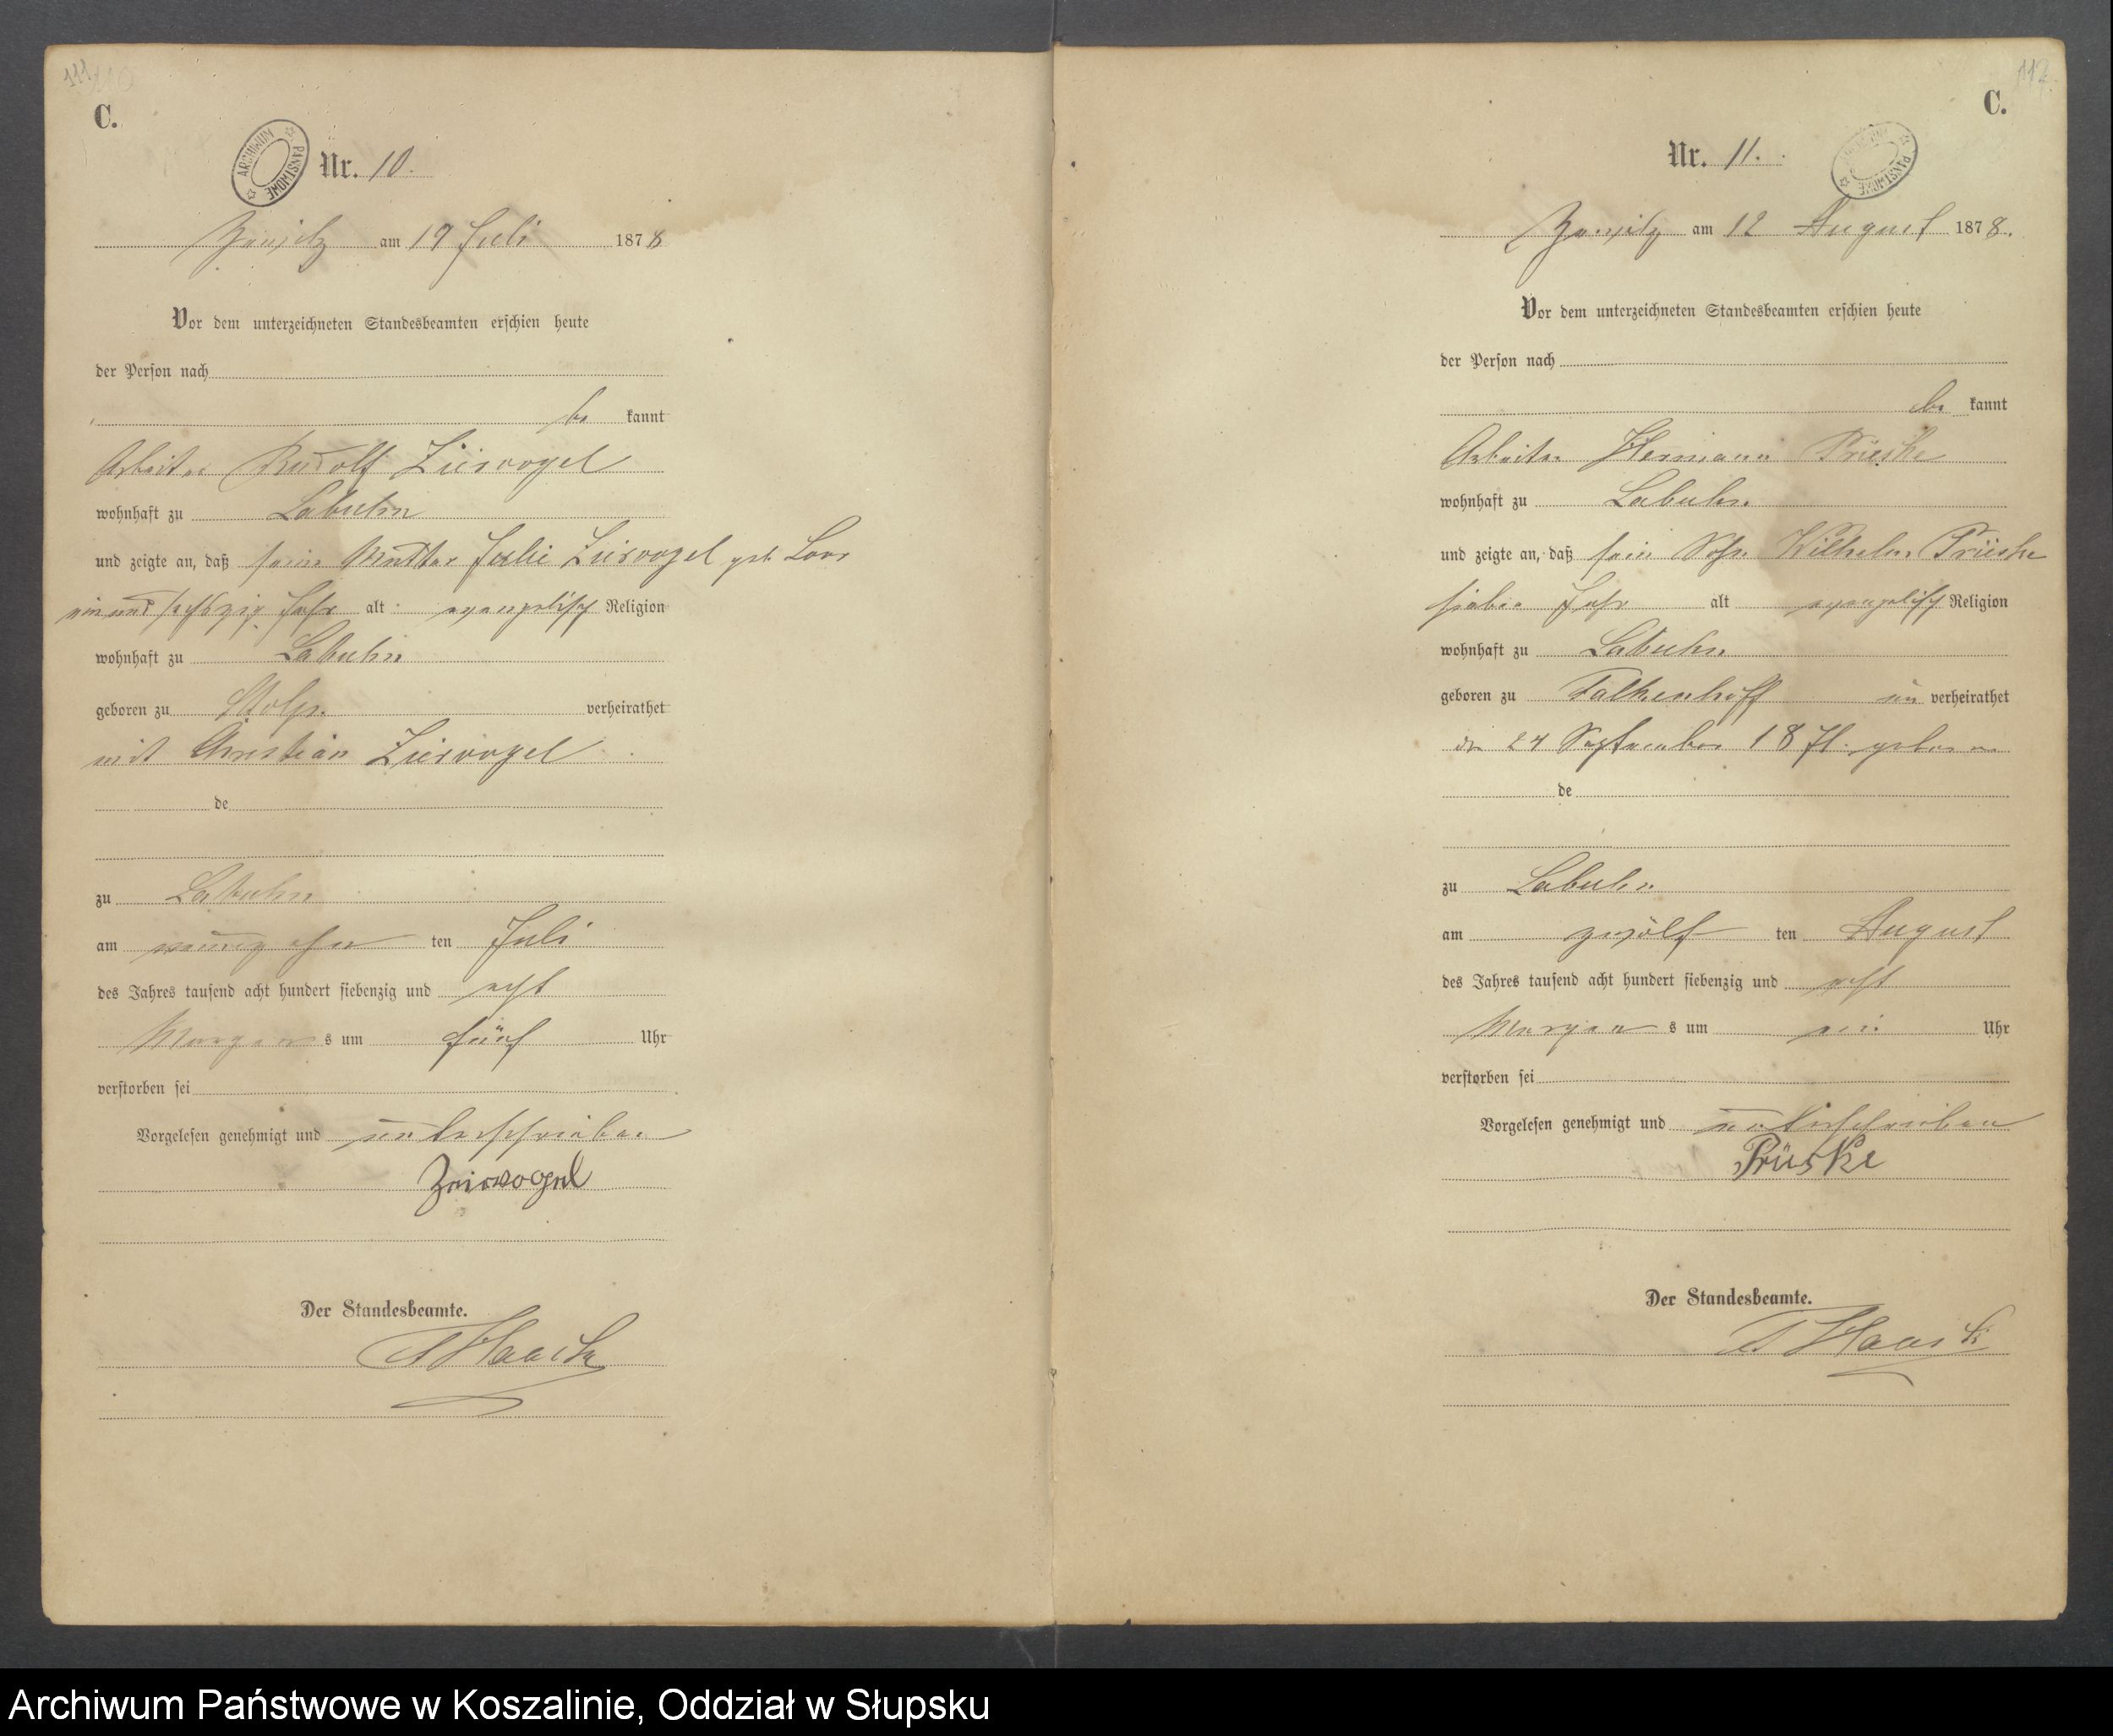 111
C.
ARCHIWUM PAŃSTWOWE
Nr. 10.
am 19 Juli 1878
Vor dem unterzeichneten Standesbeamten erschien heute
der Person nach
be kannt
Arbeiter Rudolf Ziervogel
wohnhaft zu Labuhn
und zeigte an, daß seine Mutter Julie Ziervogel geb.
ein und sechszig Jahr alt evangelisch Religion
wohnhaft zu Labuhn
geboren zu Stolp verheirathet
mit Christian Ziervogel
de
zu Labuhn
am neunzehn ten Juli
des Jahres tausend acht hundert siebenzig und acht
Morgen s um fünf Uhr
verstorben sei
Vorgelesen genehmigt und unterschrieben
Ziervogel
Der Standesbeamte.
Haack
112.
C.
Nr. 11.
ARCHIWUM PAŃSTWOWE
am 12 August 1878.
Vor dem unterzeichneten Standesbeamten erschien heute
der Person nach
be kannt
Arbeiter Hermann Prüske
wohnhaft zu Labuhn
und zeigte an, daß sein Sohn Wilhelm Prüske
sieben Jahr alt evangelisch Religion
wohnhaft zu Labuhn
geboren zu Falkenhoff un verheirathet
den 24 September 1871 geboren
de
zu Labuhn
am zwölf ten August
des Jahres tausend acht hundert siebenzig und acht
Morgen s um ein Uhr
verstorben sei
Vorgelesen genehmigt und unterschrieben
Prüske
Der Standesbeamte.
Haack
Archiwum Państwowe w Koszalinie, Oddział w Słupsku